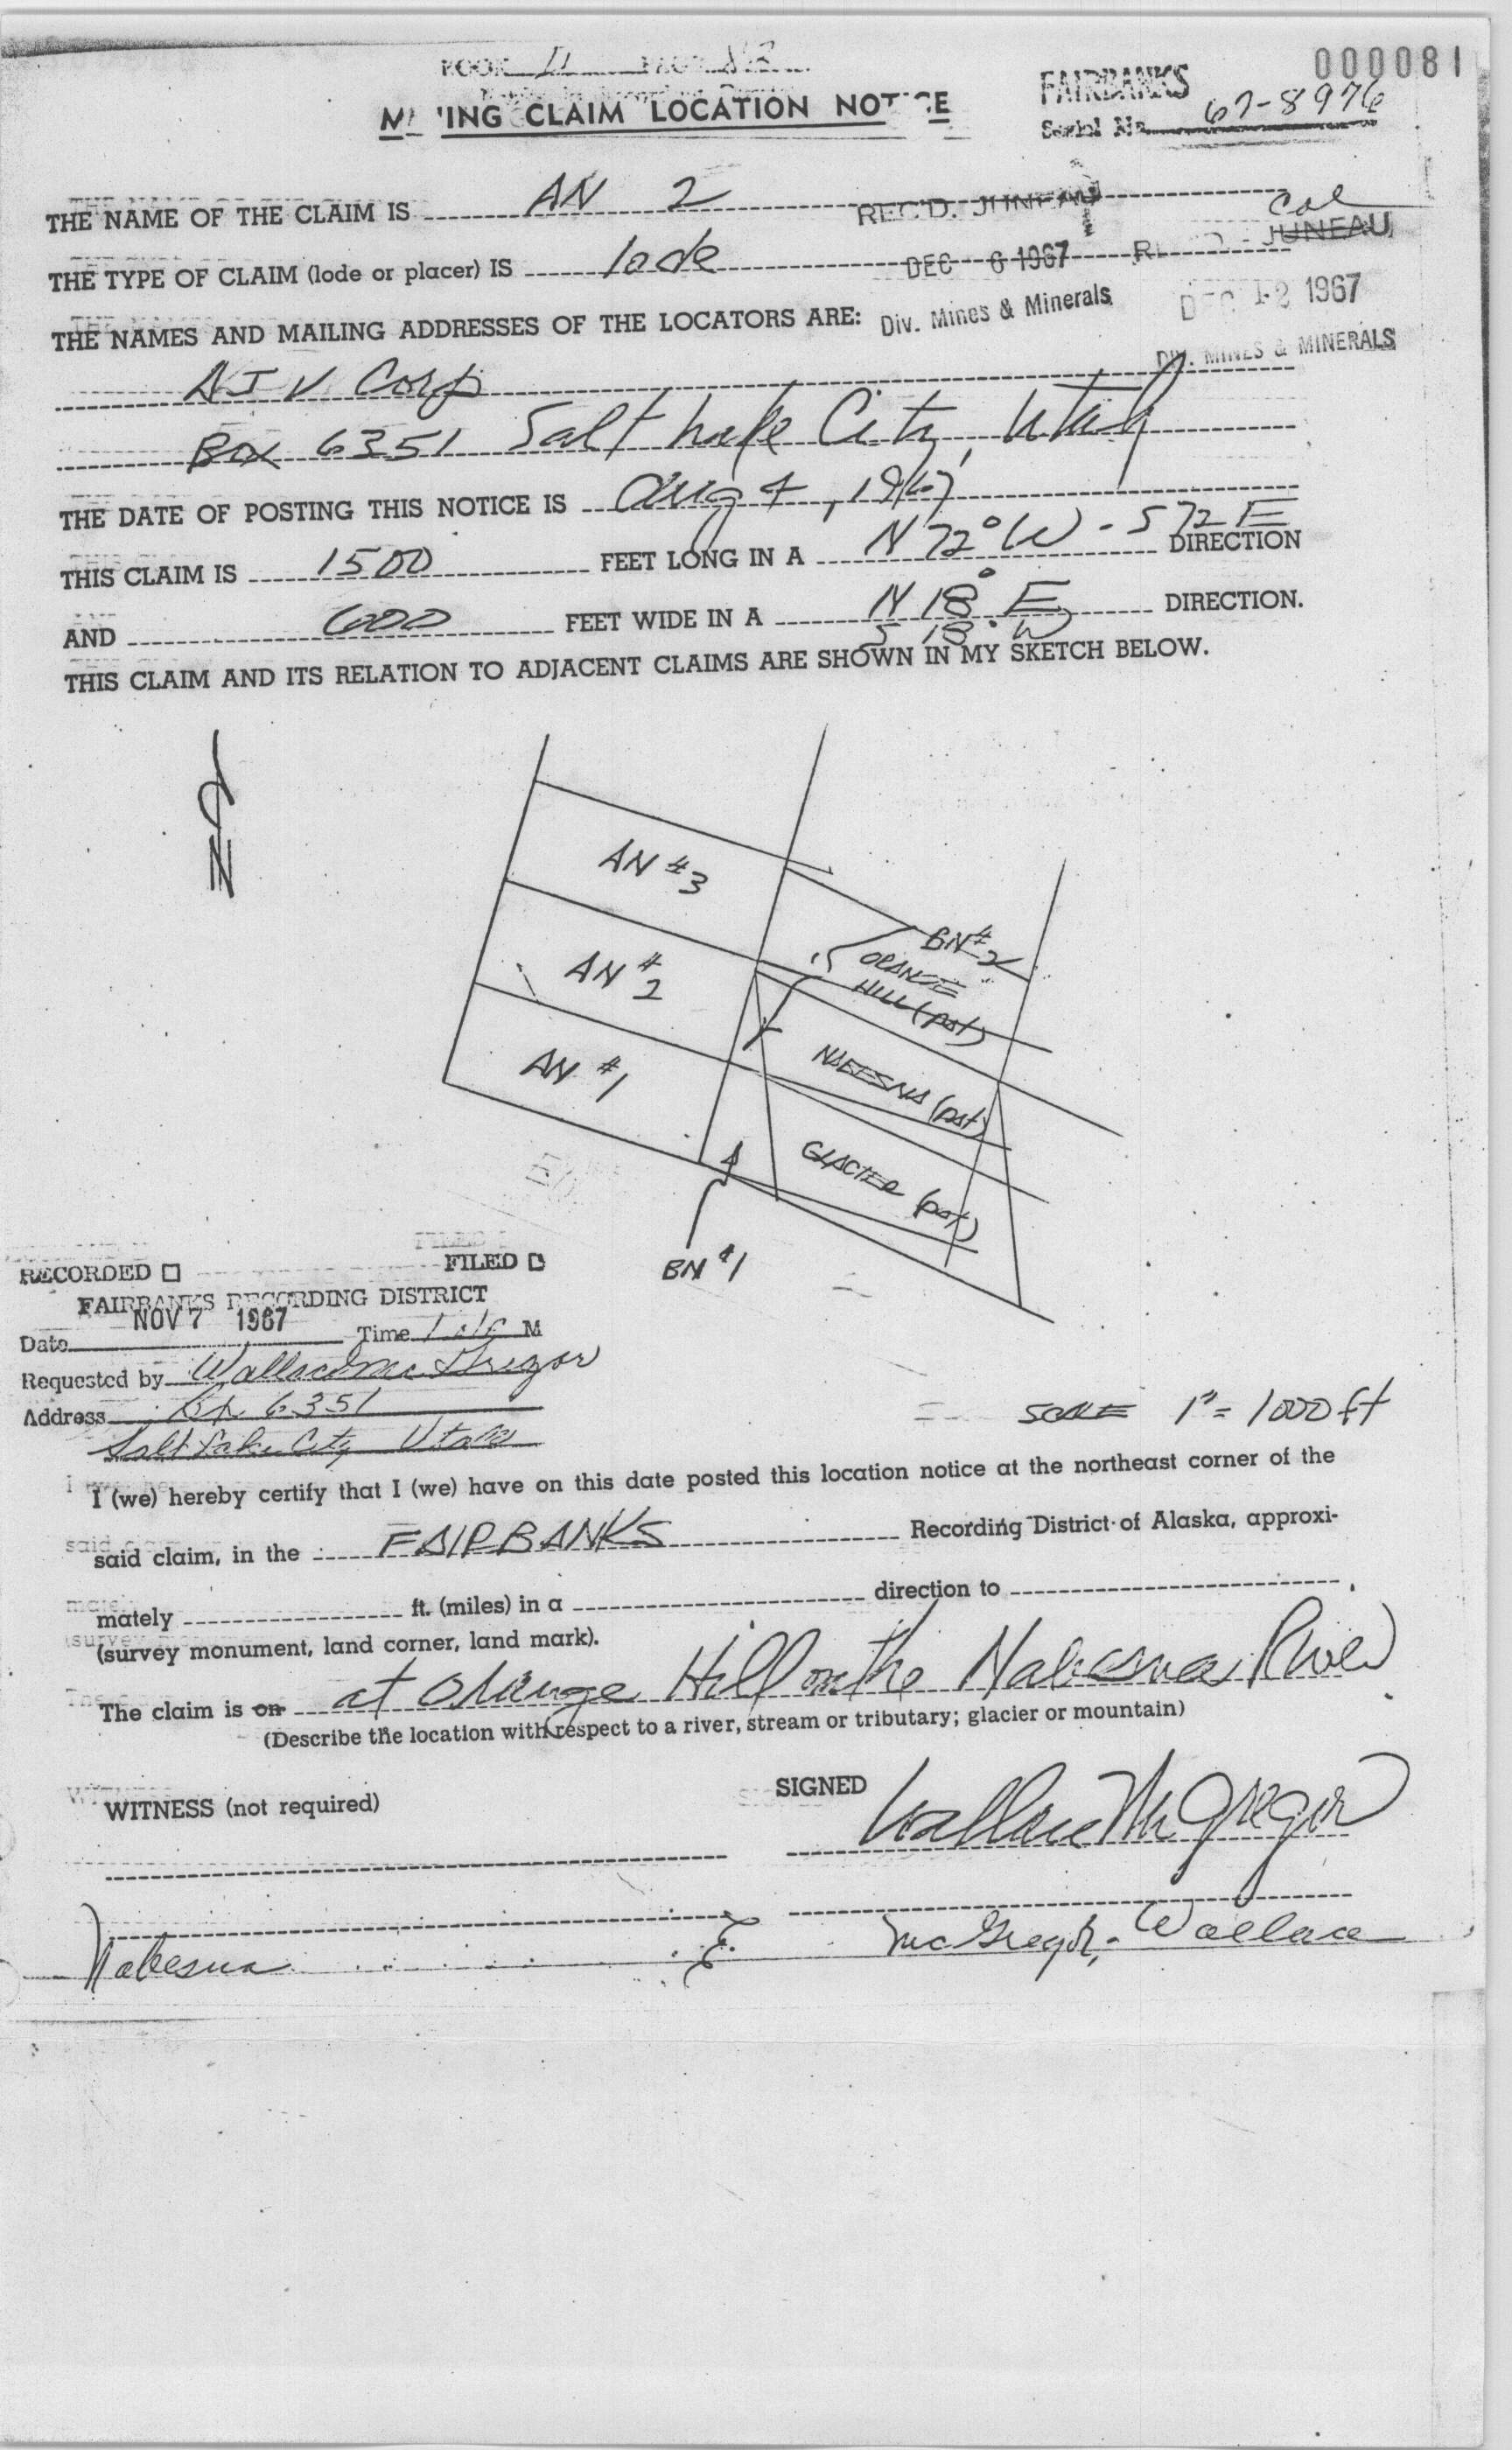 000081
BOOK II PAGE
FAIRBANKS
Serial No. 67-8976
MINING CLAIM LOCATION NOTICE
THE NAME OF THE CLAIM IS AN 2
REC'D. JUNEAU
Col
THE TYPE OF CLAIM (lode or placer) IS lode
DEC 6 1967
JUNEAU
THE NAMES AND MAILING ADDRESSES OF THE LOCATORS ARE:
Div. Mines & Minerals
DEC 12 1967
DIV. MINES & MINERALS
Corp
Box 6351 Salt Lake City, Utah
THE DATE OF POSTING THIS NOTICE IS Aug 4, 1967
THIS CLAIM IS 1500 FEET LONG IN A N 72° W - S 72 E DIRECTION
AND 600 FEET WIDE IN A N 18° E DIRECTION.
S 18° W
THIS CLAIM AND ITS RELATION TO ADJACENT CLAIMS ARE SHOWN IN MY SKETCH BELOW.
N
AN #3
BN #2
ORANGE
HILL (pat)
AN #2
NABESNA (pat)
AN #1
GLACIER (pat)
BN #1
RECORDED ☐ FILED ☐
FAIRBANKS RECORDING DISTRICT
NOV 7 1967
Date Time M
Requested by Wallace McGregor
Address Bx 6351
Salt Lake City Utah
SCALE 1" = 1000 ft
I (we) hereby certify that I (we) have on this date posted this location notice at the northeast corner of the
said claim, in the FAIRBANKS Recording District of Alaska, approxi-
mately ft. (miles) in a direction to .
(survey monument, land corner, land mark).
The claim is on at Orange Hill on the Nabesna River
(Describe the location with respect to a river, stream or tributary; glacier or mountain)
WITNESS (not required) SIGNED Wallace McGregor
Nabesna McGregor, Wallace